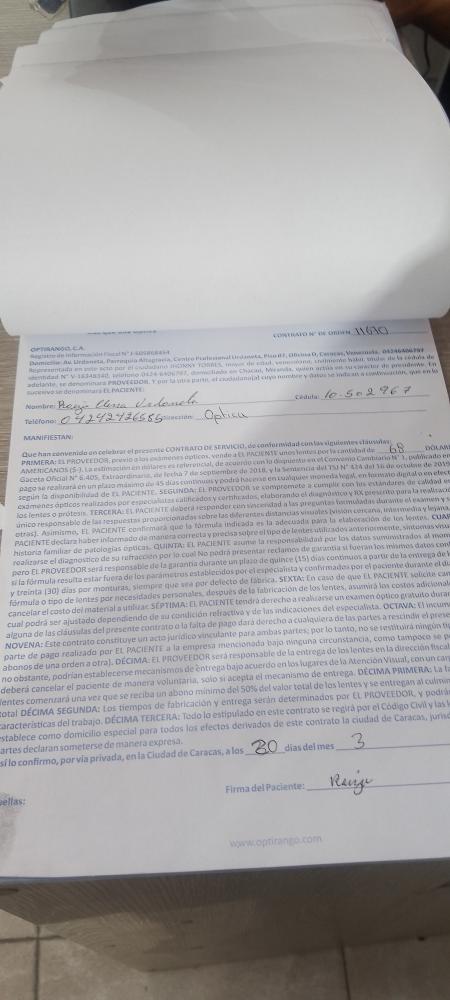 CONTRATO N° DE ORDEN 11610
OPTIRANGO, C.A.
Registro de Información Fiscal N° J-505868454
Domicilio: Av. Urdaneta, Parroquia Altagracia, Centro Profesional Urdaneta, Piso 07, Oficina D, Caracas, Venezuela. 04246406797
Representada en este acto por el ciudadano JHONNY TORRES, mayor de edad, venezolano, civilmente hábil, titular de la cédula de
identidad N° V-16348340, teléfono 0424-6406797, domiciliado en Chacao, Miranda, quien actúa en su carácter de presidente. En
adelante, se denominará PROVEEDOR. Y por la otra parte, el ciudadano(a) cuyo nombre y datos se indican a continuación, que en lo
sucesivo se denominará EL PACIENTE:
Nombre: Elena Cédula: 10.502967
Teléfono: 04242426586 Dirección: Optica
MANIFIESTAN:
Que han convenido en celebrar el presente CONTRATO DE SERVICIO, de conformidad con las siguientes cláusulas:
PRIMERA: EL PROVEEDOR, previo a los exámenes ópticos, vende a EL PACIENTE unos lentes por la cantidad de 68 DÓLARE
AMERICANOS ($-). La estimación en dólares es referencial, de acuerdo con lo dispuesto en el Convenio Cambiario N° 1, publicado en
Gaceta Oficial N° 6.405, Extraordinario, de fecha 7 de septiembre de 2018, y la Sentencia del TSJ N° 424 del 16 de octubre de 2019
pago se realizará en un plazo máximo de 45 días continuos y podrá hacerse en cualquier moneda legal, en formato digital o en efect
según la disponibilidad de EL PACIENTE. SEGUNDA: EL PROVEEDOR se compromete a cumplir con los estándares de calidad en
exámenes ópticos realizados por especialistas calificados y certificados, elaborando el diagnóstico y RX prescrito para la realizació
los lentes o prótesis. TERCERA: EL PACIENTE deberá responder con sinceridad a las preguntas formuladas durante el examen y s
único responsable de las respuestas proporcionadas sobre las diferentes distancias visuales (visión cercana, intermedia y lejana
otras). Asimismo, EL PACIENTE confirmará que la fórmula indicada es la adecuada para la elaboración de los lentes. CUAR
PACIENTE declara haber informado de manera correcta y precisa sobre el tipo de lentes utilizados anteriormente, síntomas visu
historia familiar de patologías ópticas. QUINTA: EL PACIENTE asume la responsabilidad por los datos suministrados al mom
realizarse el diagnostico de su refracción por lo cual No podrá presentar reclamos de garantía si fueran los mismos datos con
pero EL PROVEEDOR será responsable de la garantía durante un plazo de quince (15) días continuos a partir de la entrega de l
si la fórmula resulta estar fuera de los parámetros establecidos por el especialista y confirmados por el paciente durante el di
y treinta (30) días por monturas, siempre que sea por defecto de fábrica. SEXTA: En caso de que EL PACIENTE solicite can
fórmula o tipo de lentes por necesidades personales, después de la fabricación de los lentes, asumirá los costos adicional
cancelar el costo del material a utilizar. SÉPTIMA: EL PACIENTE tendrá derecho a realizarse un examen óptico gratuito duran
cual podrá ser ajustado dependiendo de su condición refractiva y de las indicaciones del especialista. OCTAVA: El incum
alguna de las cláusulas del presente contrato o la falta de pago dará derecho a cualquiera de las partes a rescindir el prese
NOVENA: Este contrato constituye un acto jurídico vinculante para ambas partes; por lo tanto, no se restituirá ningún t
parte de pago realizado por EL PACIENTE a la empresa mencionada bajo ninguna circunstancia, como tampoco se p
abonos de una orden a otra). DÉCIMA: EL PROVEEDOR será responsable de la entrega de los lentes en la dirección fiscal
no obstante, podrían establecerse mecanismos de entrega bajo acuerdo en los lugares de la Atención Visual, con un can
deberá cancelar el paciente de manera voluntaria, solo si acepta el mecanismo de entrega. DÉCIMA PRIMERA: La f
lentes comenzará una vez que se reciba un abono mínimo del 50% del valor total de los lentes y se entregan al culmin
total DÉCIMA SEGUNDA: Los tiempos de fabricación y entrega serán determinados por EL PROVEEDOR, y podrá
características del trabajo. DÉCIMA TERCERA: Todo lo estipulado en este contrato se regirá por el Código Civil y las l
establece como domicilio especial para todos los efectos derivados de este contrato la ciudad de Caracas, juris
artes declaran someterse de manera expresa.
sí lo confirmo, por vía privada, en la Ciudad de Caracas, a los 20 días del mes 3
Firma del Paciente:
ellas:
www.optirango.com